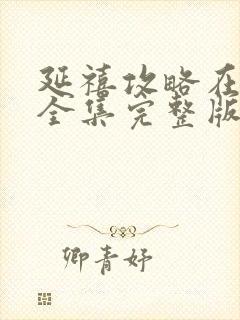 延禧攻略在
全集完整版
卿青妤